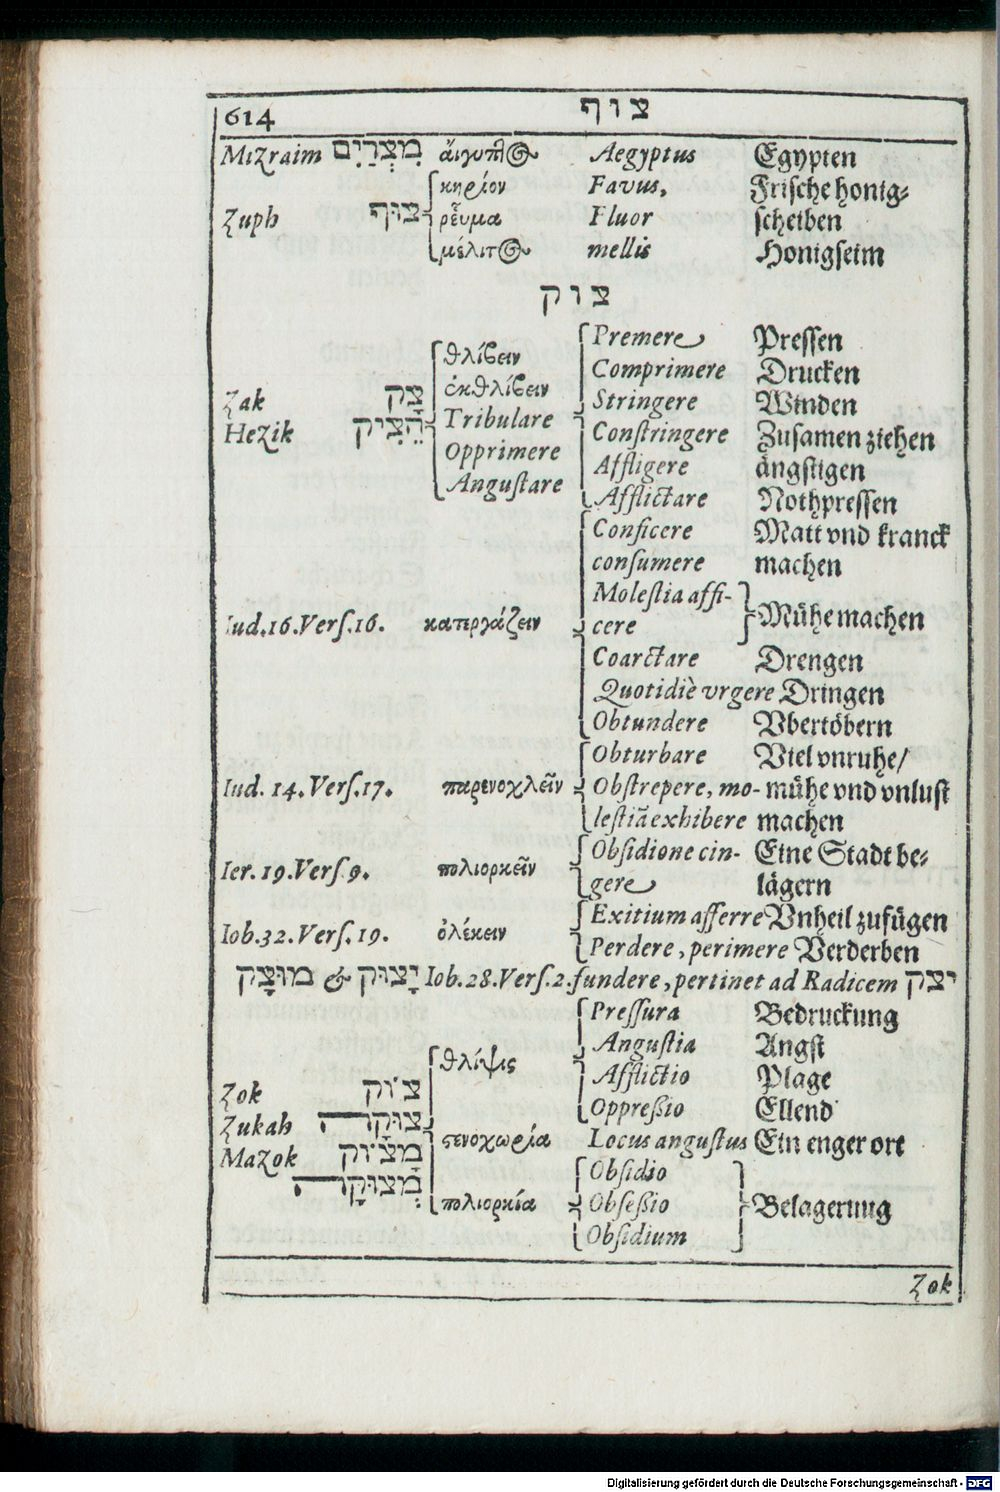 614 צוף
Mizraim מִצְרַיִם ἄιγυπτος Aegyptus Egypten
κηρίον Favus, Frische honig-
Zuph צוּף ῥεῦμα Fluor scheiben
μέλιτος mellis Honigseim
צוק
θλίβειν Premere Pressen
ἐκθλίβειν Comprimere Drucken
Zak צָק Tribulare Stringere Winden
Hezik הֵצִיק Opprimere Constringere Zusamen ziehen
Angustare Affligere ängstigen
Afflictare Nothpressen
Conficere Matt vnd kranck
consumere machen
Molestia affi-
Iud.16.Vers.16. κατεργάζειν cere Mühe machen
Coarctare Drengen
Quotidiè vrgere Dringen
Obtundere Vbertöbern
Obturbare Viel vnruhe/
Iud. 14. Vers.17. παρενοχλεῖν Obstrepere, mo- mühe vnd vnlust
lestiã exhibere machen
Ier. 19. Vers 9. πολιορκεῖν Obsidione cin- Eine Stadt be-
gere lägern
Iob. 32. Vers. 19. ὀλέκειν Exitium afferre Vnheil zufügen
Perdere, perimere Verderben
מוּצָק & יָצוּק Iob. 28. Vers. 2. fundere, pertinet ad Radicem יצק
Pressura Bedruckung
θλίψις Angustia Angst
Zok צוֹק Afflictio Plage
Zukah צוּקָה Oppreßio Ellend
Mazok מָצוֹק ϛενοχωρία Locus angustus Ein enger ort
מְצוּקָה Obsidio
πολιορκία Obseßio Belagerung
Obsidium
Zok
Digitalisierung gefördert durch die Deutsche Forschungsgemeinschaft - DFG